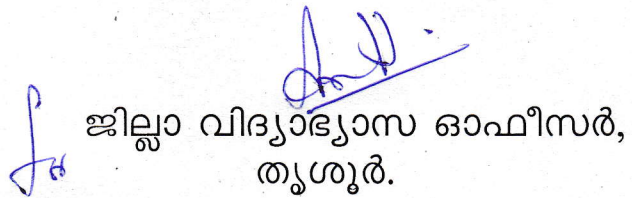 ജില്ലാ വിദ്യാഭ്യാസ ഓഫീസർ,
തൃശൂർ.